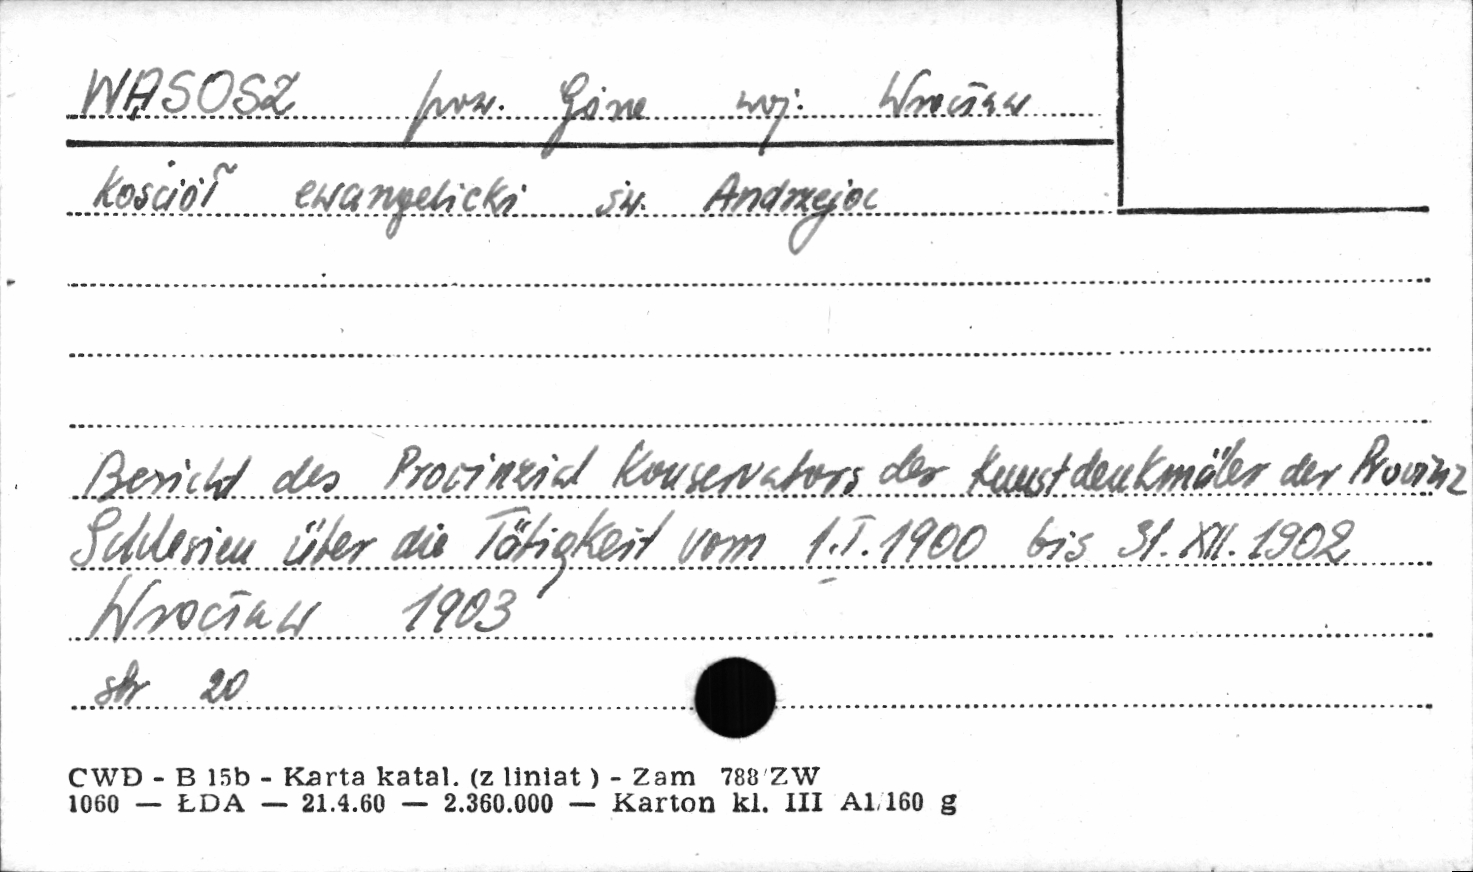 WĄSOSZ pow. Góra woj. Wrocław
Kościół ewangelicki św. Andrzeja
Bericht des Provinzial Konservators der Kunstdenkmäler der Provinz
Schlesien über die Tätigkeit vom 1.I.1900 bis 31.XII.1902
Wrocław 1903
str 20
CWD - B 15b - Karta katal. (z liniat ) - Zam 788/ZW
1060 — ŁDA — 21.4.60 — 2.360.000 — Karton kl. III A1/160 g